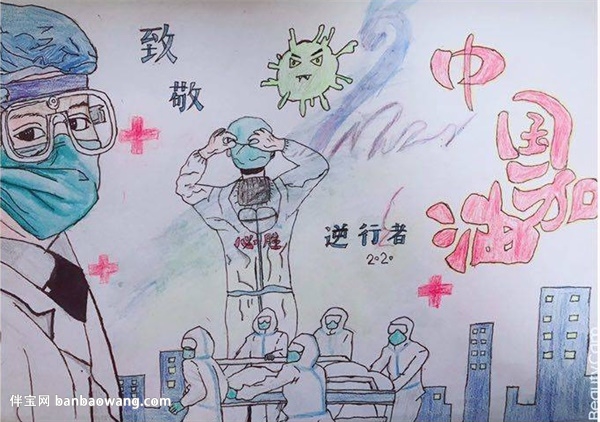 致敬
中国加油
必胜
逆行者
2020
伴宝网 banbaowang.com
Beauty.Com